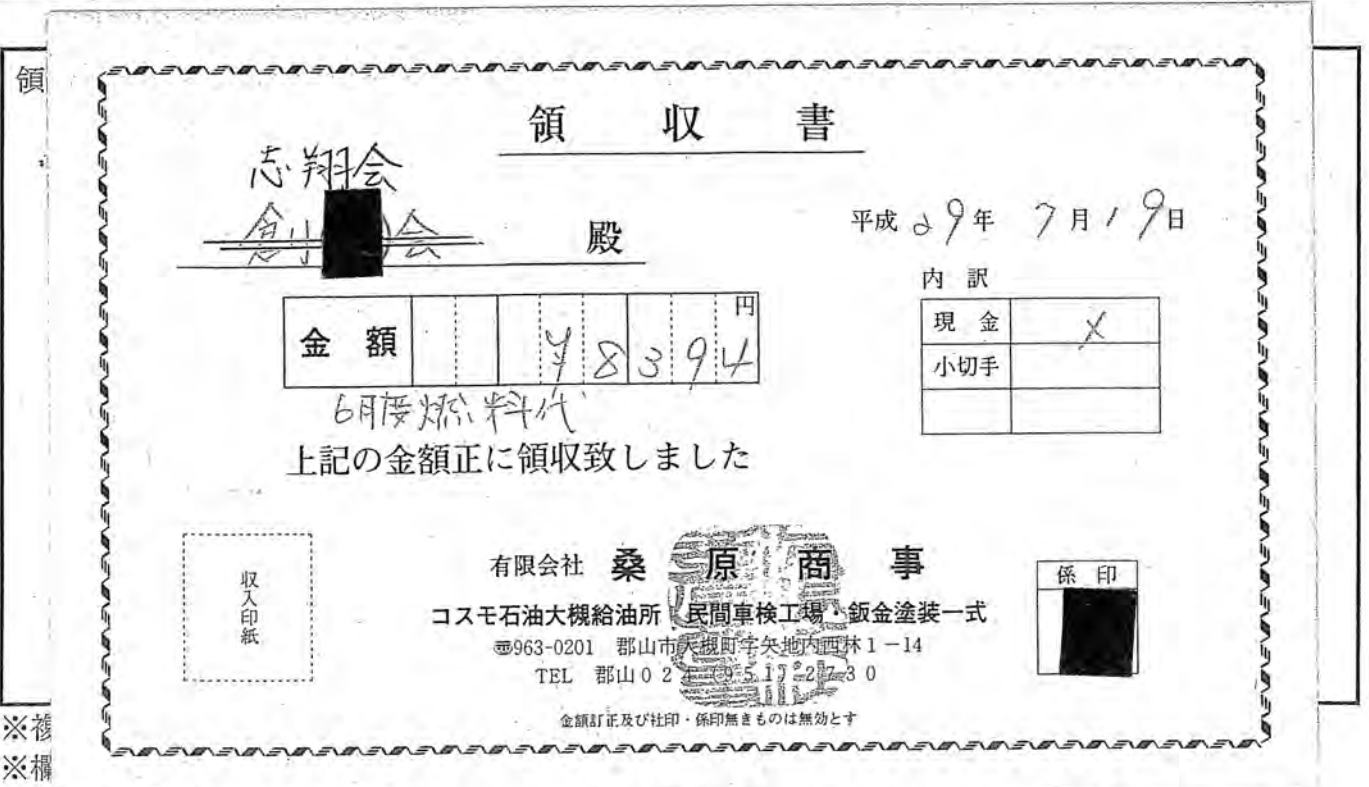 領
領 収 書
志翔会
殿
平成 29年 7月19日
内 訳
現 金
小切手
金 額 円
¥8394
6月度燃料代
上記の金額正に領収致しました
収入印紙
有限会社 桑 原 商 事
コスモ石油大槻給油所 民間車検工場 鈑金塗装一式
〠963-0201 郡山市大槻町字矢地内西林1-14
TEL 郡山024-951-2730
係 印
金額訂正及び社印・係印無きものは無効とす
※複
※欄